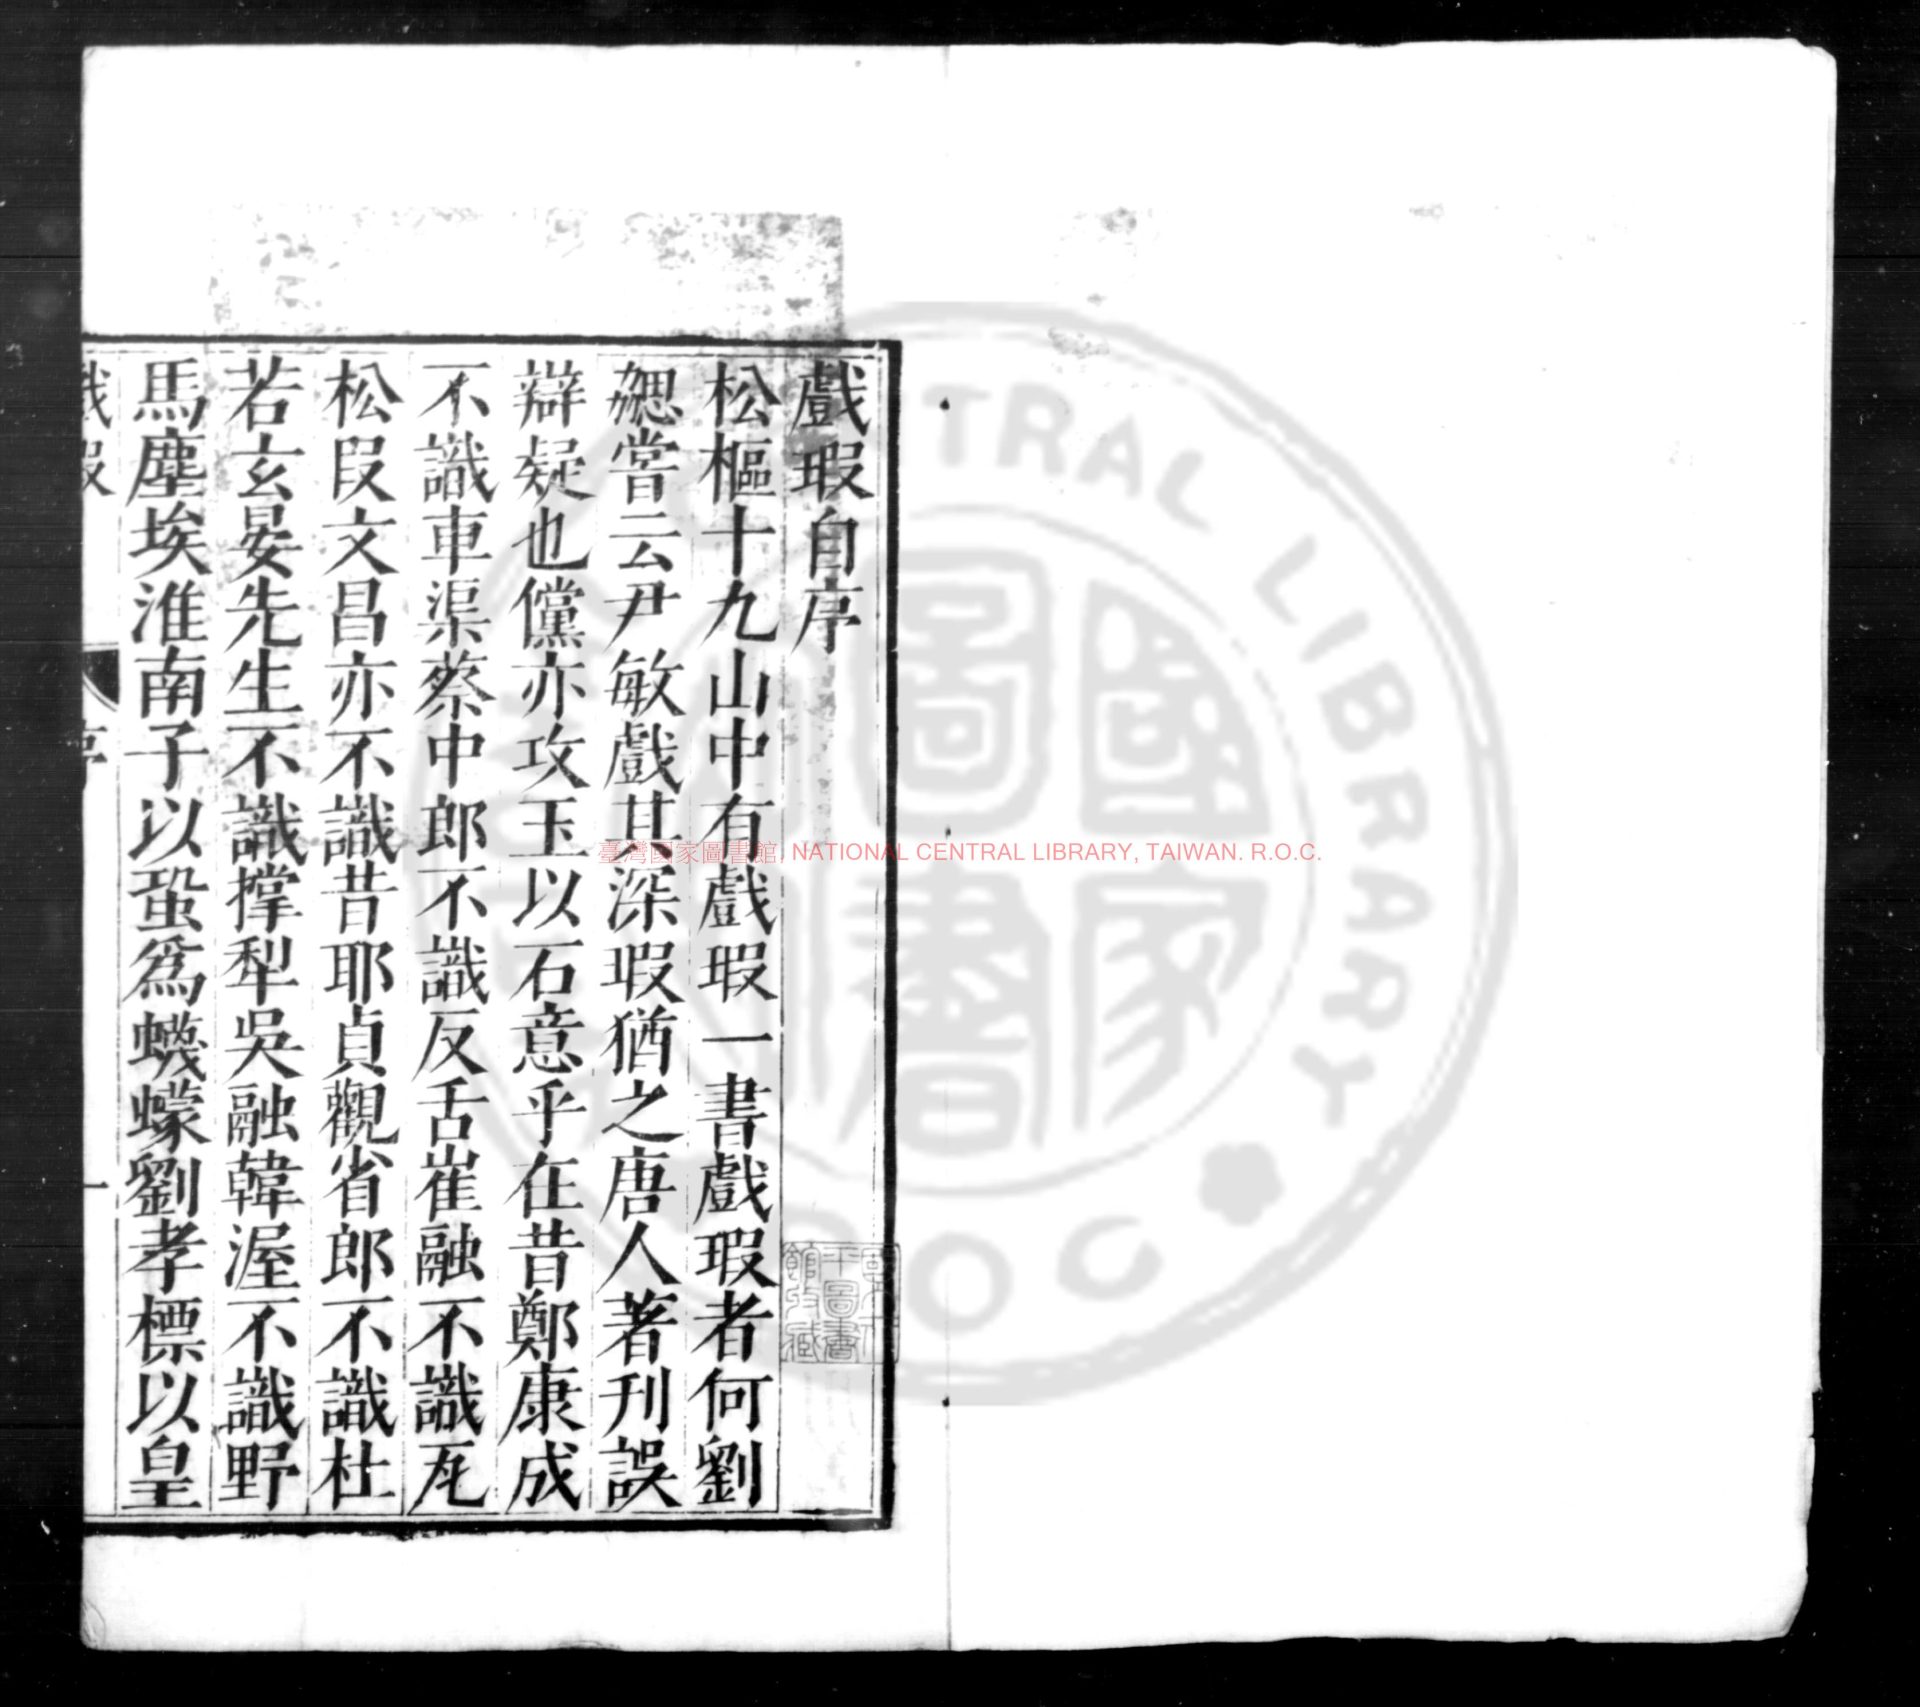 戲瑕自序
松樞十九山中有戲瑕一書戲瑕者何劉
勰嘗云尹敏戲其深瑕猶之唐人著刊誤
辯疑也儻亦攻玉以石意乎在昔鄭康成
不識車渠蔡中郎不識反舌崔融不識瓦
松段文昌亦不識昔耶貞觀省郎不識杜
若玄晏先生不識撑犁吳融韓渥不識野
馬塵埃淮南子以蛩爲蠛蠓劉孝標以皇
戲瑕
序
一
臺灣國家圖書館, NATIONAL CENTRAL LIBRARY, TAIWAN. R.O.C.
國家圖書
CENTRAL LIBRARY
R.O.C